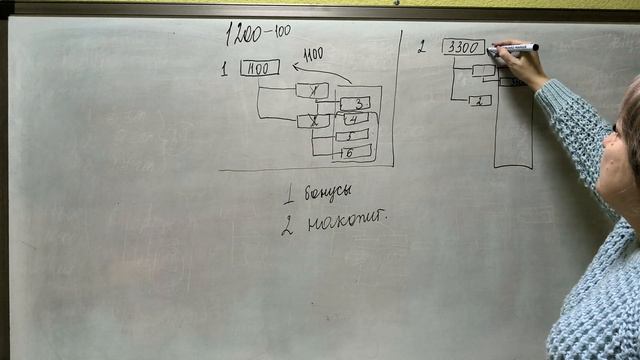 1200-100
1100
1 1100
1
3
2
4
5
6
2 3300
2
1 бонусы
2 накопит.